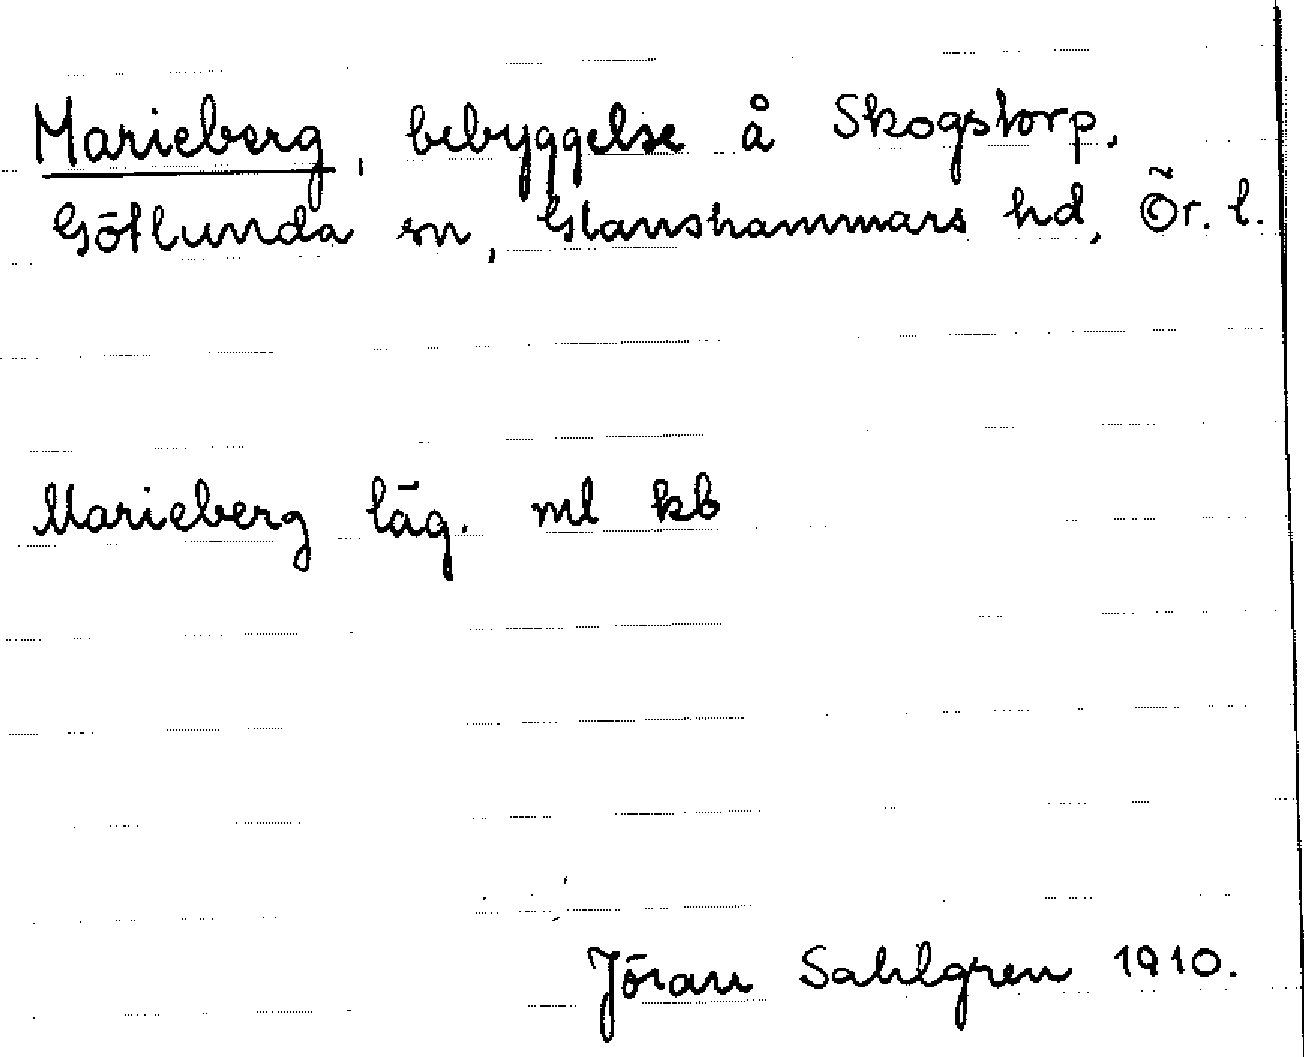 Marieberg, bebyggelse å Skogstorp,
Götlunda sn, Glanshammars hd, Ör. l.
Marieberg läg. ml kb
Jöran Sahlgren 1910.